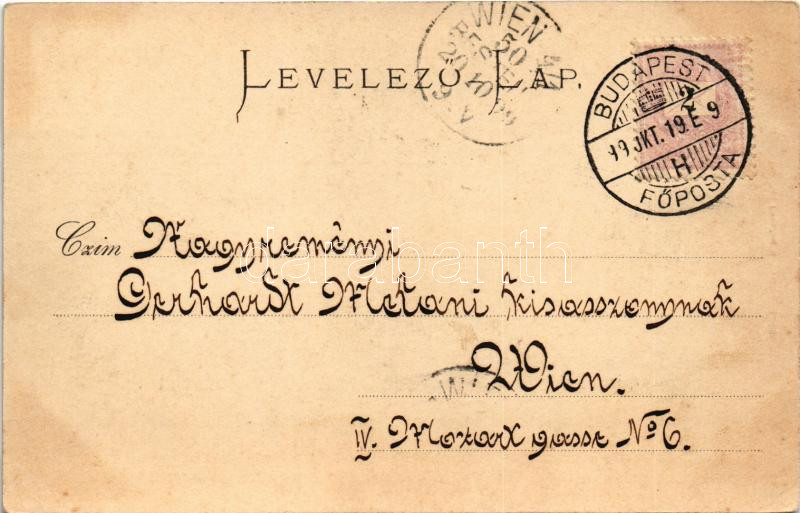 LEVELEZŐ LAP.
WIEN
BUDAPEST
99 OKT. 19. E 9
H
FŐPOSTA
Czim Nagyreményi
Gerhardt Melani kisasszonynak
Wien.
IV. Mozart gasse No 6.
darabanth